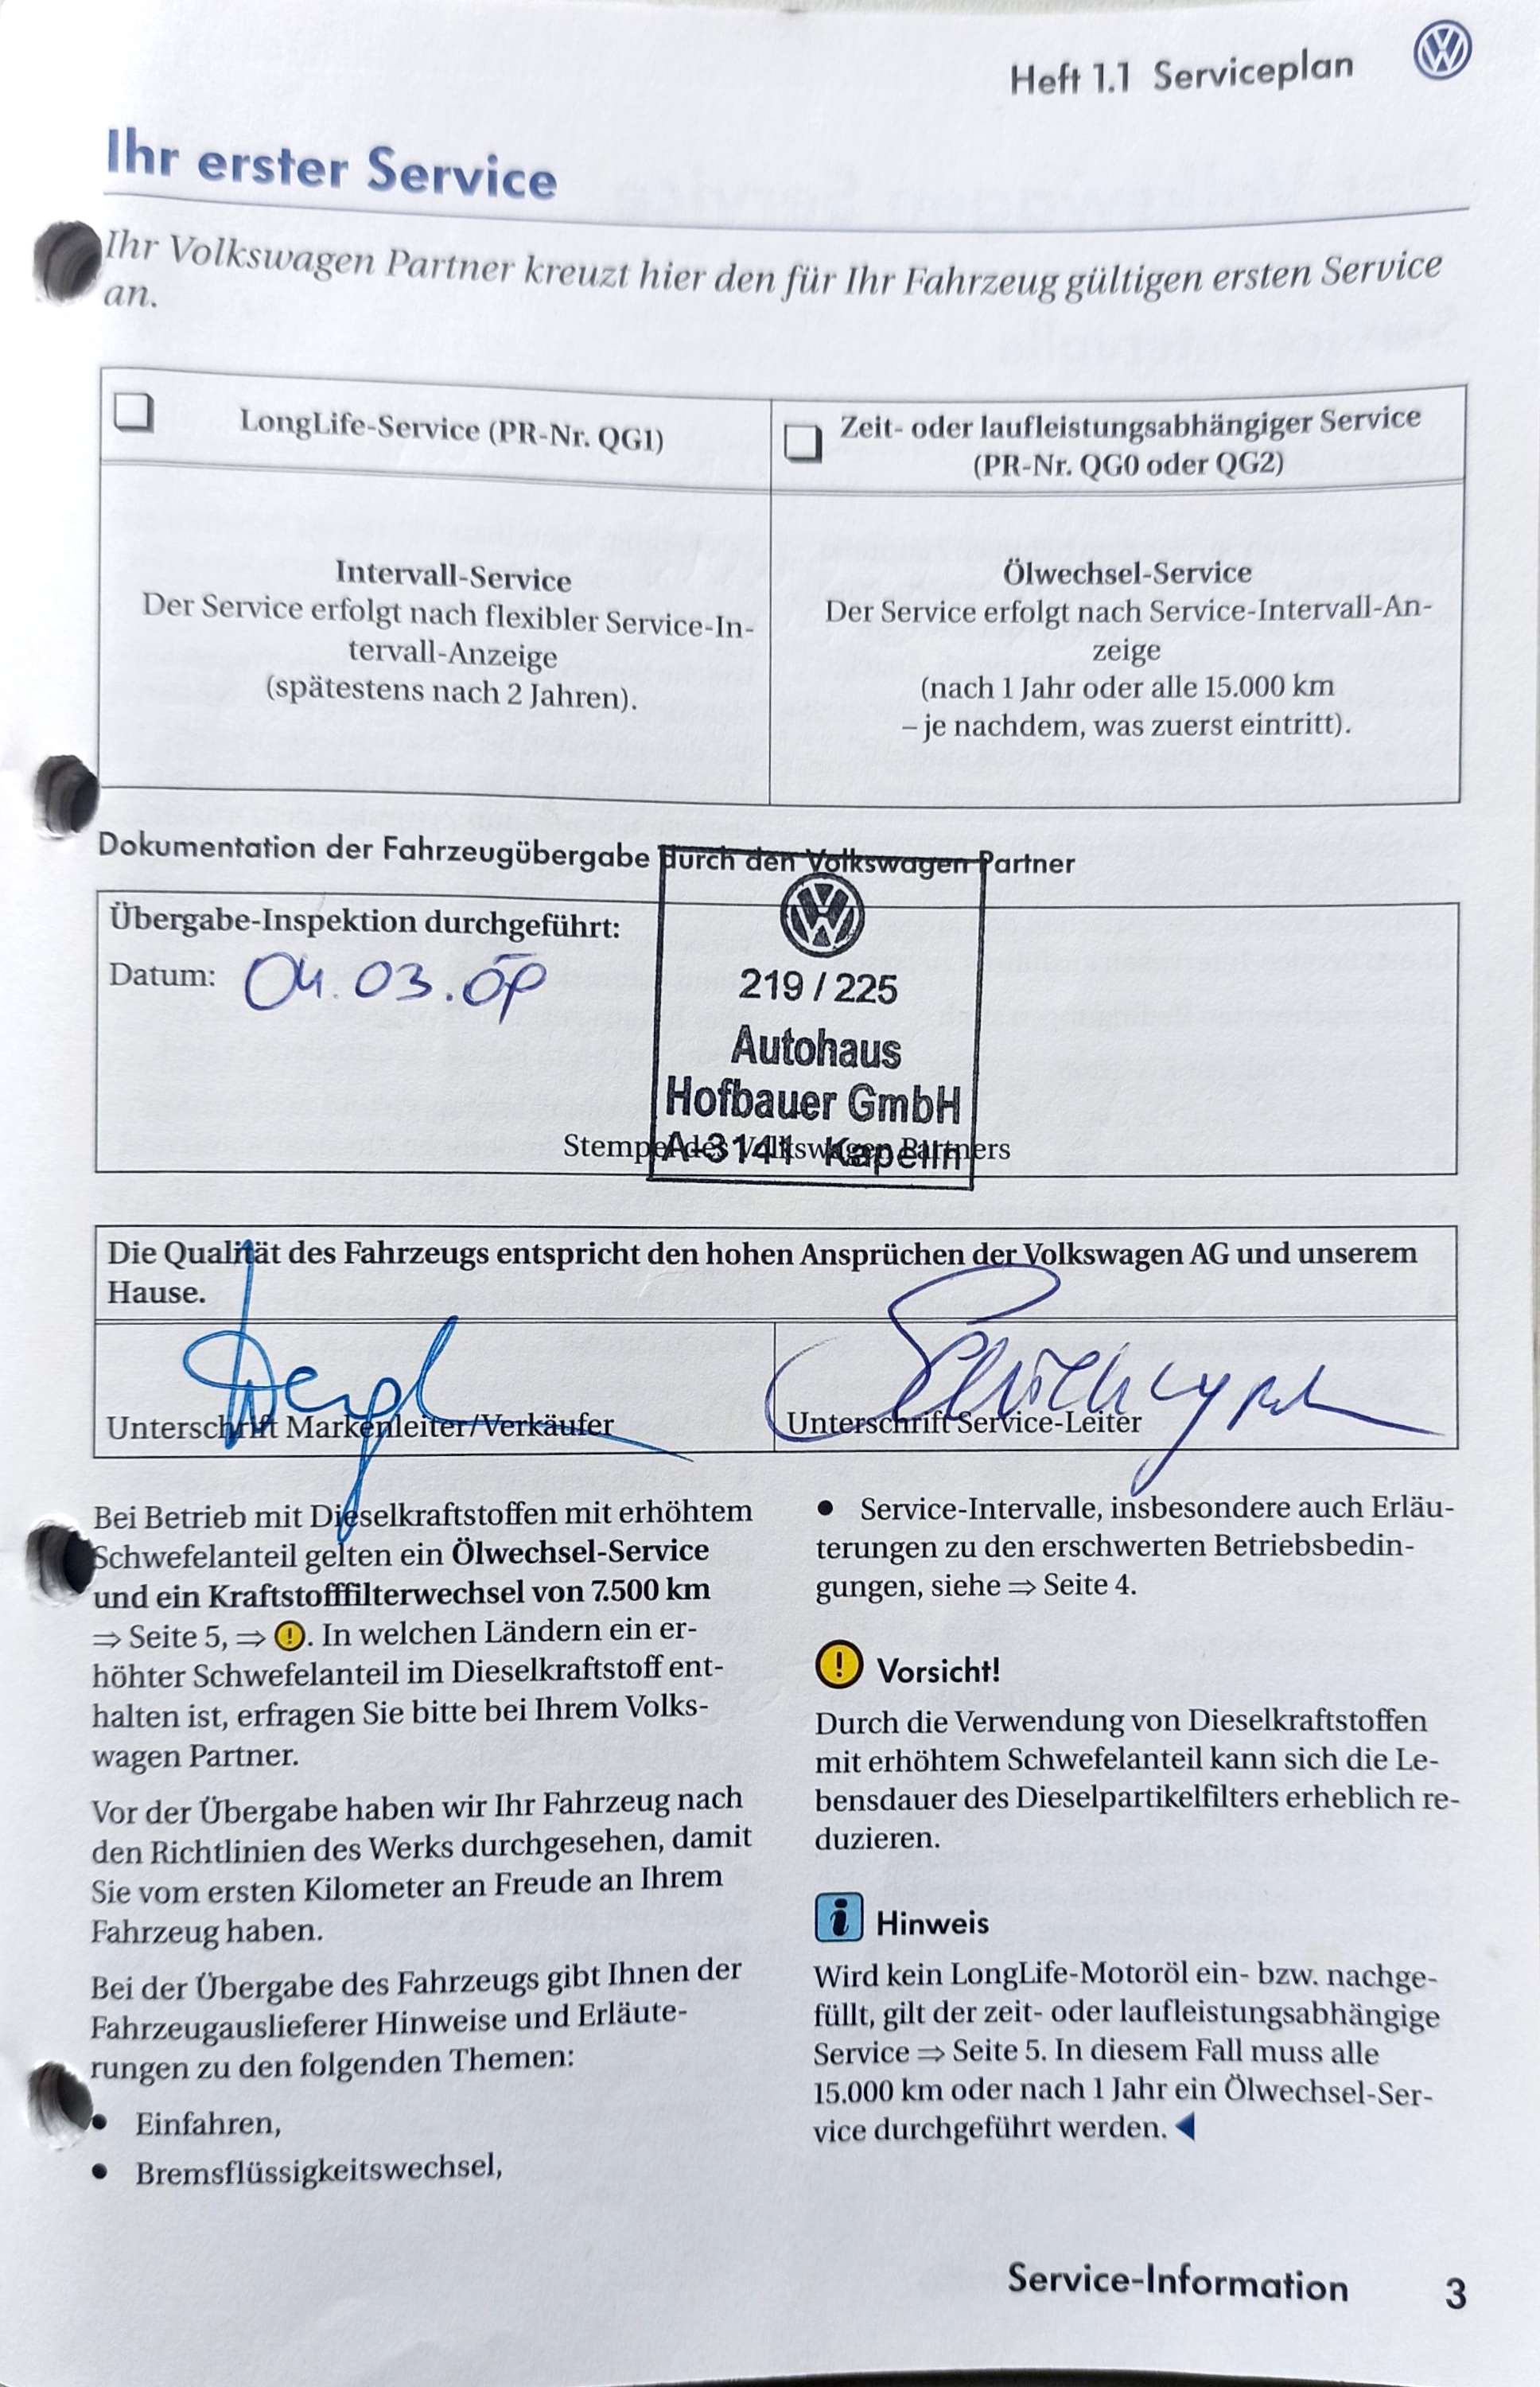 Heft 1.1 Serviceplan
Ihr erster Service
Ihr Volkswagen Partner kreuzt hier den für Ihr Fahrzeug gültigen ersten Service
an.
LongLife-Service (PR-Nr. QG1)
Zeit- oder laufleistungsabhängiger Service
(PR-Nr. QG0 oder QG2)
Intervall-Service
Der Service erfolgt nach flexibler Service-In-
tervall-Anzeige
(spätestens nach 2 Jahren).
Ölwechsel-Service
Der Service erfolgt nach Service-Intervall-An-
zeige
(nach 1 Jahr oder alle 15.000 km
– je nachdem, was zuerst eintritt).
Dokumentation der Fahrzeugübergabe durch den Volkswagen Partner
Übergabe-Inspektion durchgeführt:
Datum: 04.03.
219 / 225
Autohaus
Hofbauer GmbH
A-3141 Kapelln
Stempel des Volkswagen Partners
Die Qualität des Fahrzeugs entspricht den hohen Ansprüchen der Volkswagen AG und unserem
Hause.
Unterschrift Markenleiter/Verkäufer
Unterschrift Service-Leiter
Bei Betrieb mit Dieselkraftstoffen mit erhöhtem
Schwefelanteil gelten ein Ölwechsel-Service
und ein Kraftstofffilterwechsel von 7.500 km
⇒ Seite 5, ⇒ !. In welchen Ländern ein er-
höhter Schwefelanteil im Dieselkraftstoff ent-
halten ist, erfragen Sie bitte bei Ihrem Volks-
wagen Partner.
Vor der Übergabe haben wir Ihr Fahrzeug nach
den Richtlinien des Werks durchgesehen, damit
Sie vom ersten Kilometer an Freude an Ihrem
Fahrzeug haben.
Bei der Übergabe des Fahrzeugs gibt Ihnen der
Fahrzeugauslieferer Hinweise und Erläute-
rungen zu den folgenden Themen:
• Einfahren,
• Bremsflüssigkeitswechsel,
• Service-Intervalle, insbesondere auch Erläu-
terungen zu den erschwerten Betriebsbedin-
gungen, siehe ⇒ Seite 4.
! Vorsicht!
Durch die Verwendung von Dieselkraftstoffen
mit erhöhtem Schwefelanteil kann sich die Le-
bensdauer des Dieselpartikelfilters erheblich re-
duzieren.
i Hinweis
Wird kein LongLife-Motoröl ein- bzw. nachge-
füllt, gilt der zeit- oder laufleistungsabhängige
Service ⇒ Seite 5. In diesem Fall muss alle
15.000 km oder nach 1 Jahr ein Ölwechsel-Ser-
vice durchgeführt werden. ◀
Service-Information 3